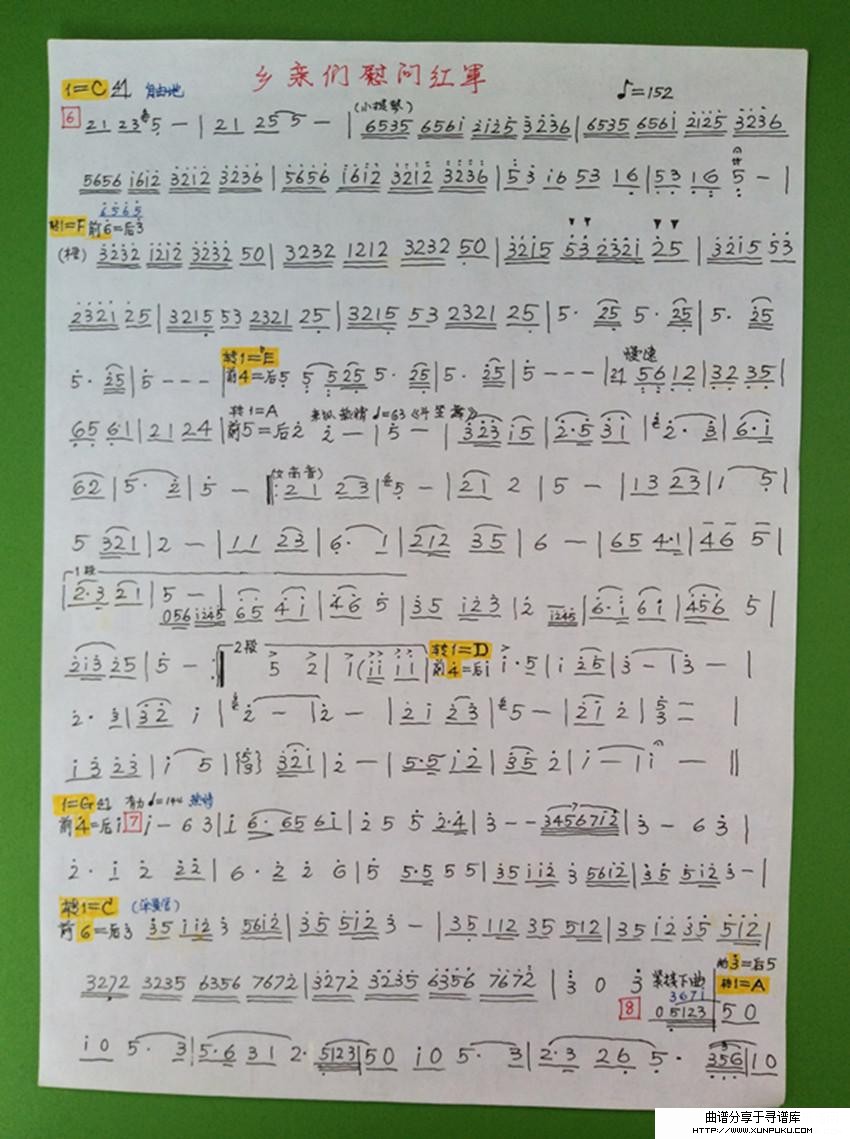 乡亲们慰问红軍
1=C 自由地 ♪=152
6 21 235 — | 21 255 — | (小提琴) 6535 6561 2125 3236 | 6535 6561 2125 3236
5656 1612 3212 3236 | 5656 1612 3212 3236 | 53 16 53 16 | 53 16 5 — |
6565
转1=F 前6=后3
3232 1212 3232 50 | 3232 1212 3232 50 | 3215 53 2321 25 | 3215 53
2321 25 | 3215 53 2321 25 | 3215 53 2321 25 | 5· 25 5· 25 | 5· 25
慢速
5· 25 | 5 - - - | 转1=E 前4=后5 5 525 5· 25 | 5· 25 | 5 - - - | 56 12 | 32 35 |
65 61 | 21 24 | 转1=A 前5=后2 热情 ♩=63 2 — | 5 — | 323 15 | 2·5 31 | 2· 3 | 6·1
62 | 5· 2 | 5 — |: (女高音) 21 23 | 5 — | 21 2 | 5 — | 13 23 | 1 5 |
5 321 | 2 — | 11 23 | 6· 1 | 212 35 | 6 — | 65 4·1 | 46 5 |
1段
2·3 21 | 5 — | 056 1245 65 41 | 46 5 | 35 123 | 2 1245 | 6·1 61 | 456 5 |
213 25 | 5 — :| 2段 5 2 | 1 (11 11 | 转1=D 前4=后1 1·5 | 1 25 | 3 — | 3 — |
2· 3 | 32 1 | 2 — | 2 — | 21 23 | 5 — | 21 2 | 5 3 — |
13 23 | 1 5 | {5 3} 321 | 2 — | 5·5 12 | 35 2 | 1 — | 1 — ||
1=G 有力 ♩=144 热情
前4=后1 7 1 — 6 3 | 1 6· 65 61 | 2 5 5 2·4 | 3 - - 3456712 | 3 — 6 3 |
2· 1 2 22 | 6· 2 2 6 | 5 5·5 5 5 | 35 112 3 5612 | 35 512 3 — |
转1=C
前6=后3 35 112 3 5612 | 35 512 3 — | 35 112 35 512 | 35 12 35 512 |
3272 3235 6356 7672 | 3272 3235 6356 7672 | 3 0 3 紧接下曲 前3=后5 转1=A
3671
8 05123 | 50
10 5· 3 | 5·6 31 2· 5123 | 50 10 5· 3 | 2·3 26 5· 356 | 10
曲谱分享于寻谱库
HTTP://WWW.XUNPUKU.COM